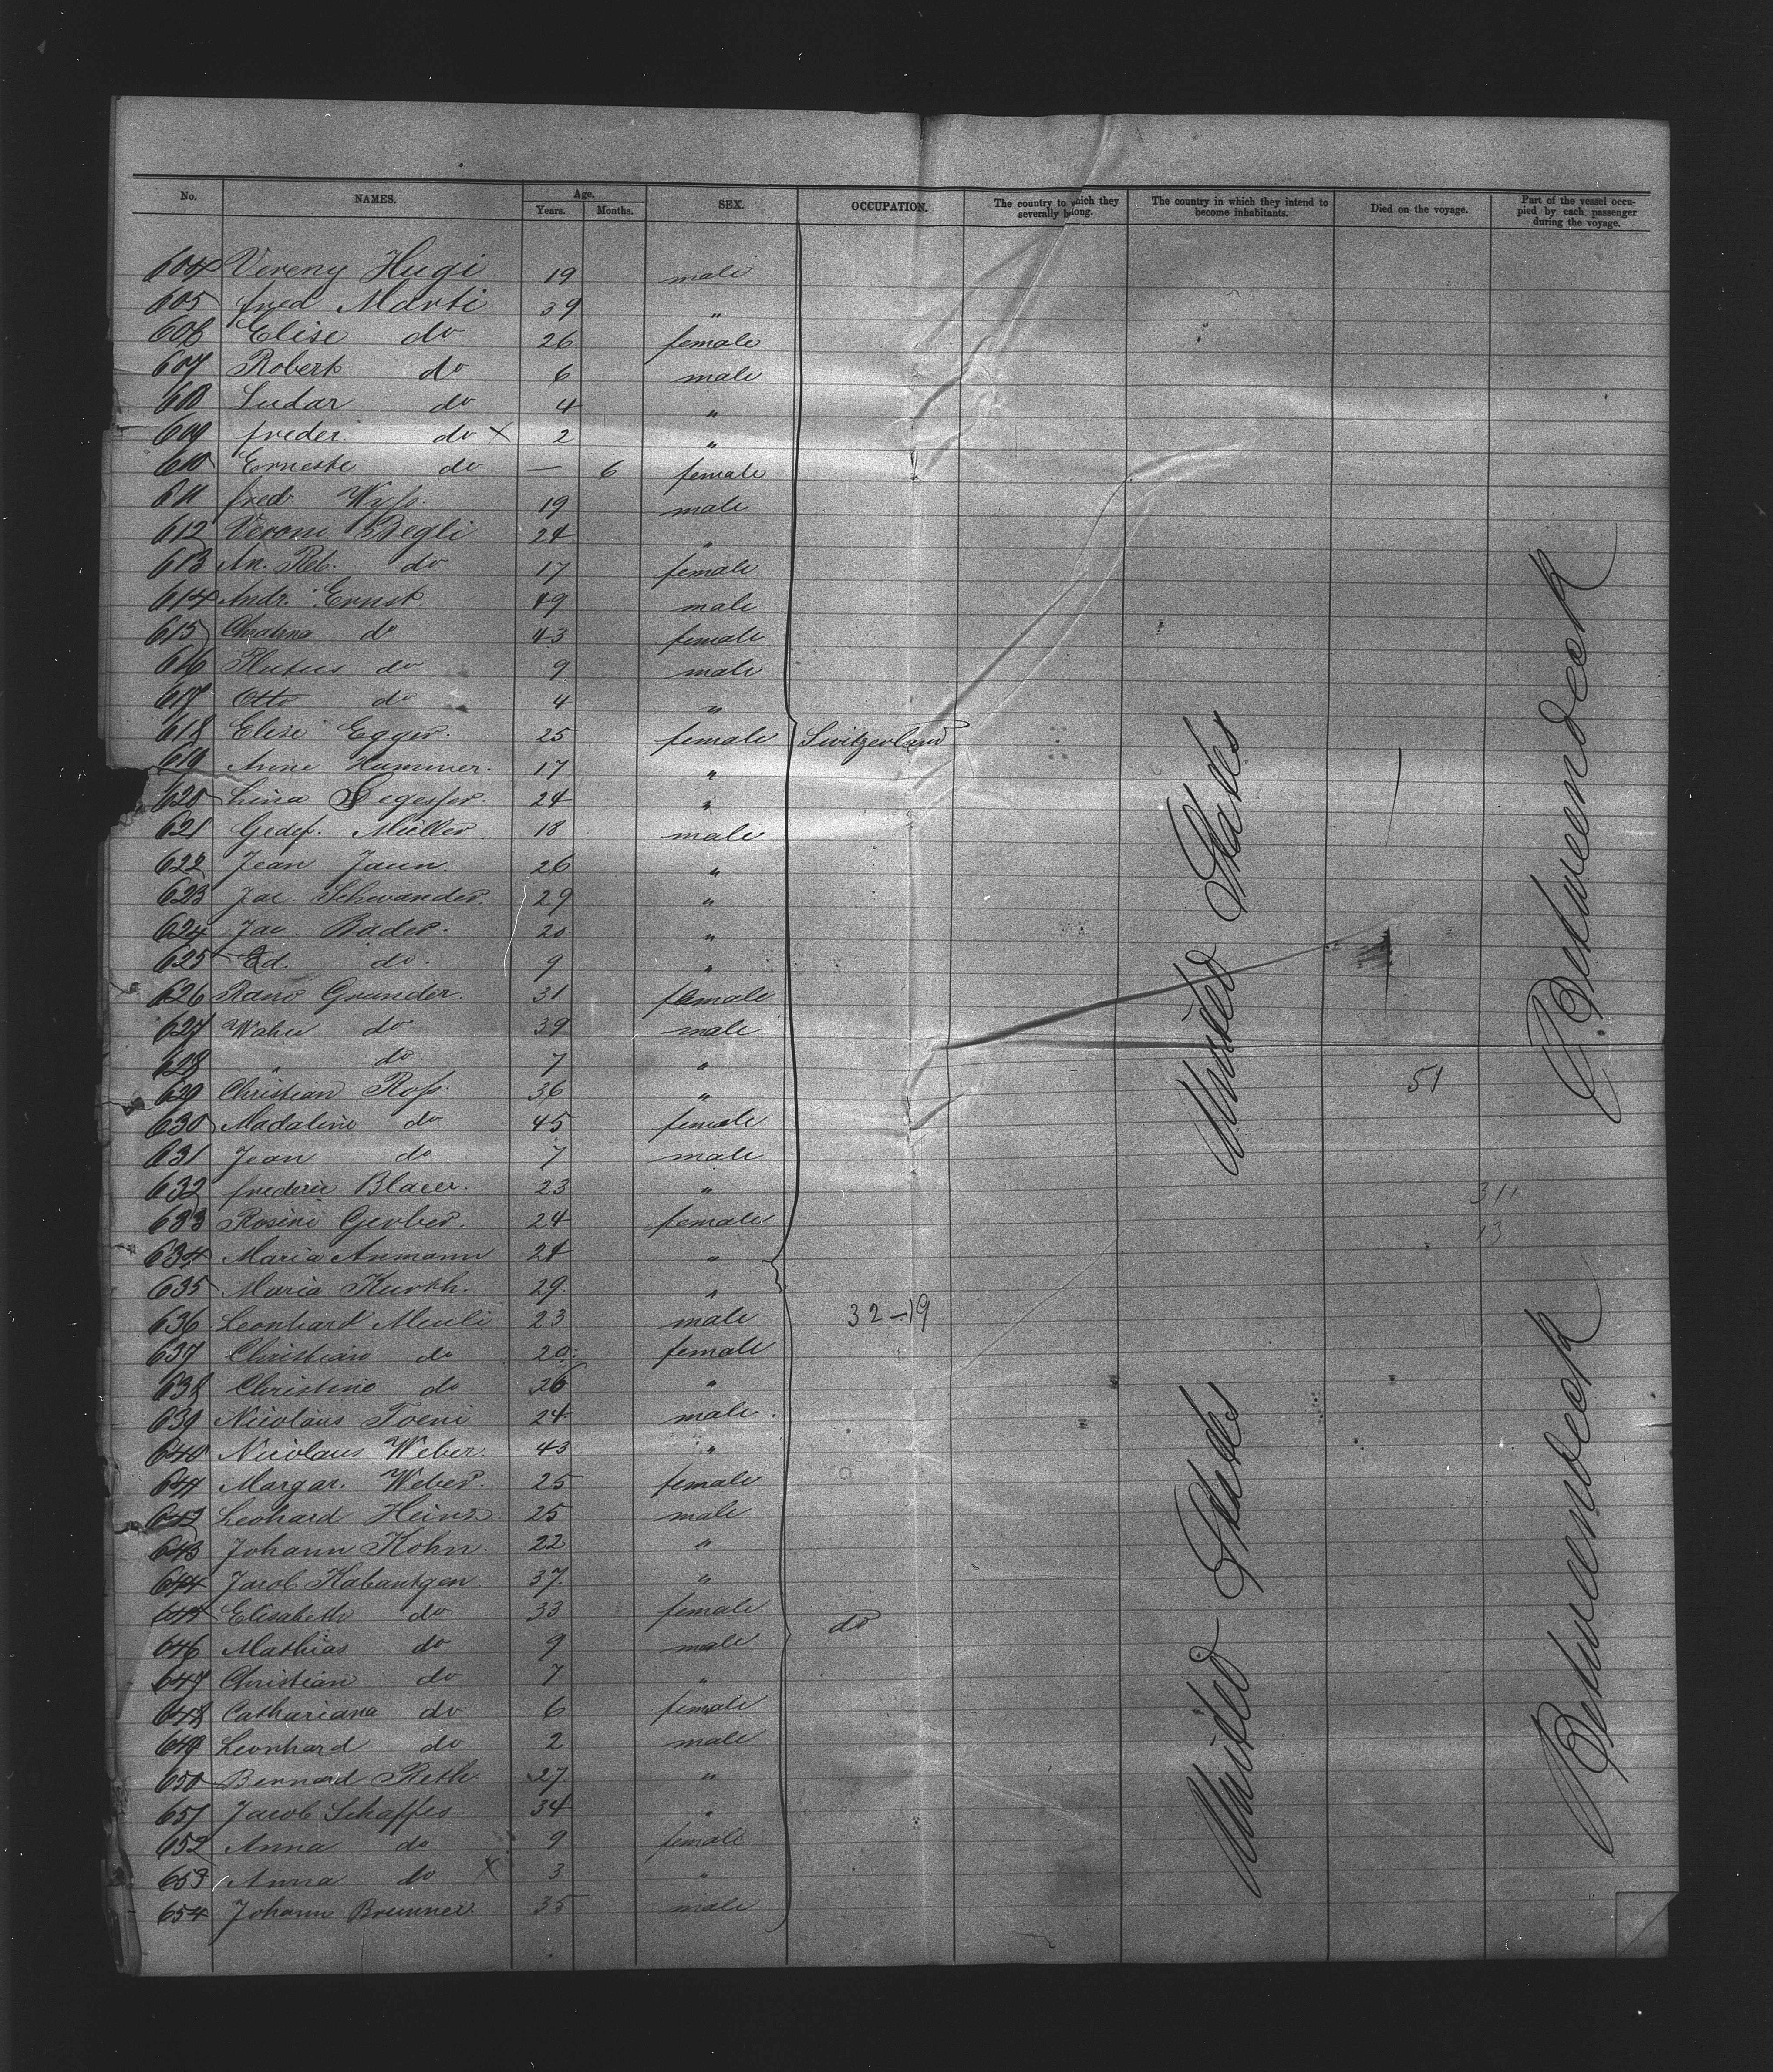 No. NAMES. Age. Years. Months. SEX. OCCUPATION. The country to which they severally belong. The country in which they intend to become inhabitants. Died on the voyage. Part of the vessel occupied by each passenger during the voyage.
604 Vereny Hugi 19 male
605 fred Marti 39 "
606 Elise do 26 female
607 Robert do 6 male
608 Ludar do 4 "
609 freder. do X 2 "
610 Erneste do — 6 female
611 fred Wyss. 19 male
612 Veroni Begli 24 "
613 An. Reb. do 17 female
614 Andr. Ernst. 49 male
615 do 43 female
616 Rufus do 9 male
617 Otto do 4 "
618 Elise Egger. 25 female Switzerland
619 Anne Hammer. 17 "
620 Lina Segesser. 24 "
621 Müller 18 male
622 Jean Jaun. 26 "
623 Jac. Schwander. 29 "
624 Jac. Bader. 20 "
625 Ed. do. 9 "
626 Grunder. 31 female
627 do 39 male
628 " do 7 "
629 Christian Ross. 36 "
630 Madaline do 45 female
631 Jean do 7 male
632 frederic Blauer. 23 "
633 Rosine Gerber. 24 female
634 Maria Ammann 24 "
635 Maria Kurth. 29. "
636 Leonhard Meuli 23 male
637 Christian do 20 female
638 Christine do 26 "
639 Nicolaus Toeni 24 male.
640 Nicolaus Weber 43 "
641 Margar. Weber. 25 female
642 Leohard Heinz. 25 male
643 Johann Kohn. 22 "
644 Jacob Kabantgen 37. "
645 Elisabeth do 33 female do
646 Mathias do 9 male
647 Christian do 7 "
648 Cathariana do 6 female
649 Leonhard do 2 male
650 Bernard Reth. 27. "
651 Jacob Schaffer. 34 "
652 Anna do 9 female
653 Anna do X 3 "
654 Johann Brunner. 35 male
32-19
United States
United States
51
311
13
Betweendeck
Betweendeck